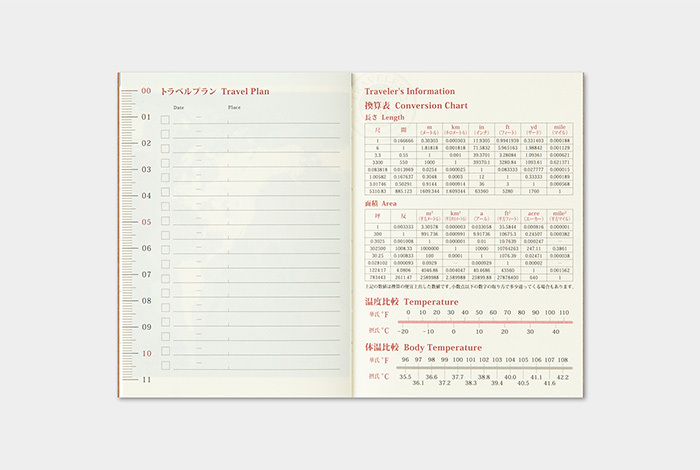 00
トラベルプラン Travel Plan
Date — Place
01
02
03
04
05
06
07
08
09
10
11
Traveler's Information
換算表 Conversion Chart
長さ Length
尺 間 m km in ft yd mile
(メートル) (キロメートル) (インチ) (フィート) (ヤード) (マイル)
1 0.166666 0.30303 0.000303 11.9305 0.9941939 0.331403 0.000188
6 1 1.81818 0.001818 71.5832 5.965163 1.98842 0.001129
3.3 0.55 1 0.001 39.3701 3.28084 1.09361 0.000621
3300 550 1000 1 39370.1 3280.84 1093.61 0.621371
0.083818 0.013969 0.0254 0.000025 1 0.083333 0.027777 0.000015
1.00582 0.167637 0.3048 0.0003 12 1 0.33333 0.000189
3.01746 0.50291 0.9144 0.000914 36 3 1 0.000568
5310.83 885.123 1609.344 1.609344 63360 5280 1760 1
面積 Area
坪 反 m² km² a ft² acre mile²
(平方メートル) (平方キロメートル) (アール) (平方フィート) (エーカー) (平方マイル)
1 0.003333 3.30578 0.000003 0.033058 35.5844 0.000816 0.000001
300 1 991.736 0.000991 9.91736 10675.3 0.24507 0.000382
0.3025 0.001008 1 0.000001 0.01 10.7639 0.000247 —
302500 1008.33 1000000 1 10000 10764263 247.11 0.3861
30.25 0.100833 100 0.0001 1 1076.39 0.02471 0.000038
0.028102 0.000093 0.0929 — 0.000929 1 0.00002 —
1224.17 4.0806 4046.86 0.004047 40.4686 43560 1 0.001562
783443 2611.47 2589988 2.589988 25899.88 27878400 640 1
上記の数値は換算の便宜上出した数値です。小数点以下の数字の取り方で多少違ってくる場合もあります。
温度比較 Temperature
華氏 °F 0 10 20 30 40 50 60 70 80 90 100 110
摂氏 °C −20 −10 0 10 20 30 40
体温比較 Body Temperature
華氏 °F 96 97 98 99 100 101 102 103 104 105 106 107 108
摂氏 °C 35.5 36.6 37.7 38.8 40.0 41.1 42.2
36.1 37.2 38.3 39.4 40.5 41.6